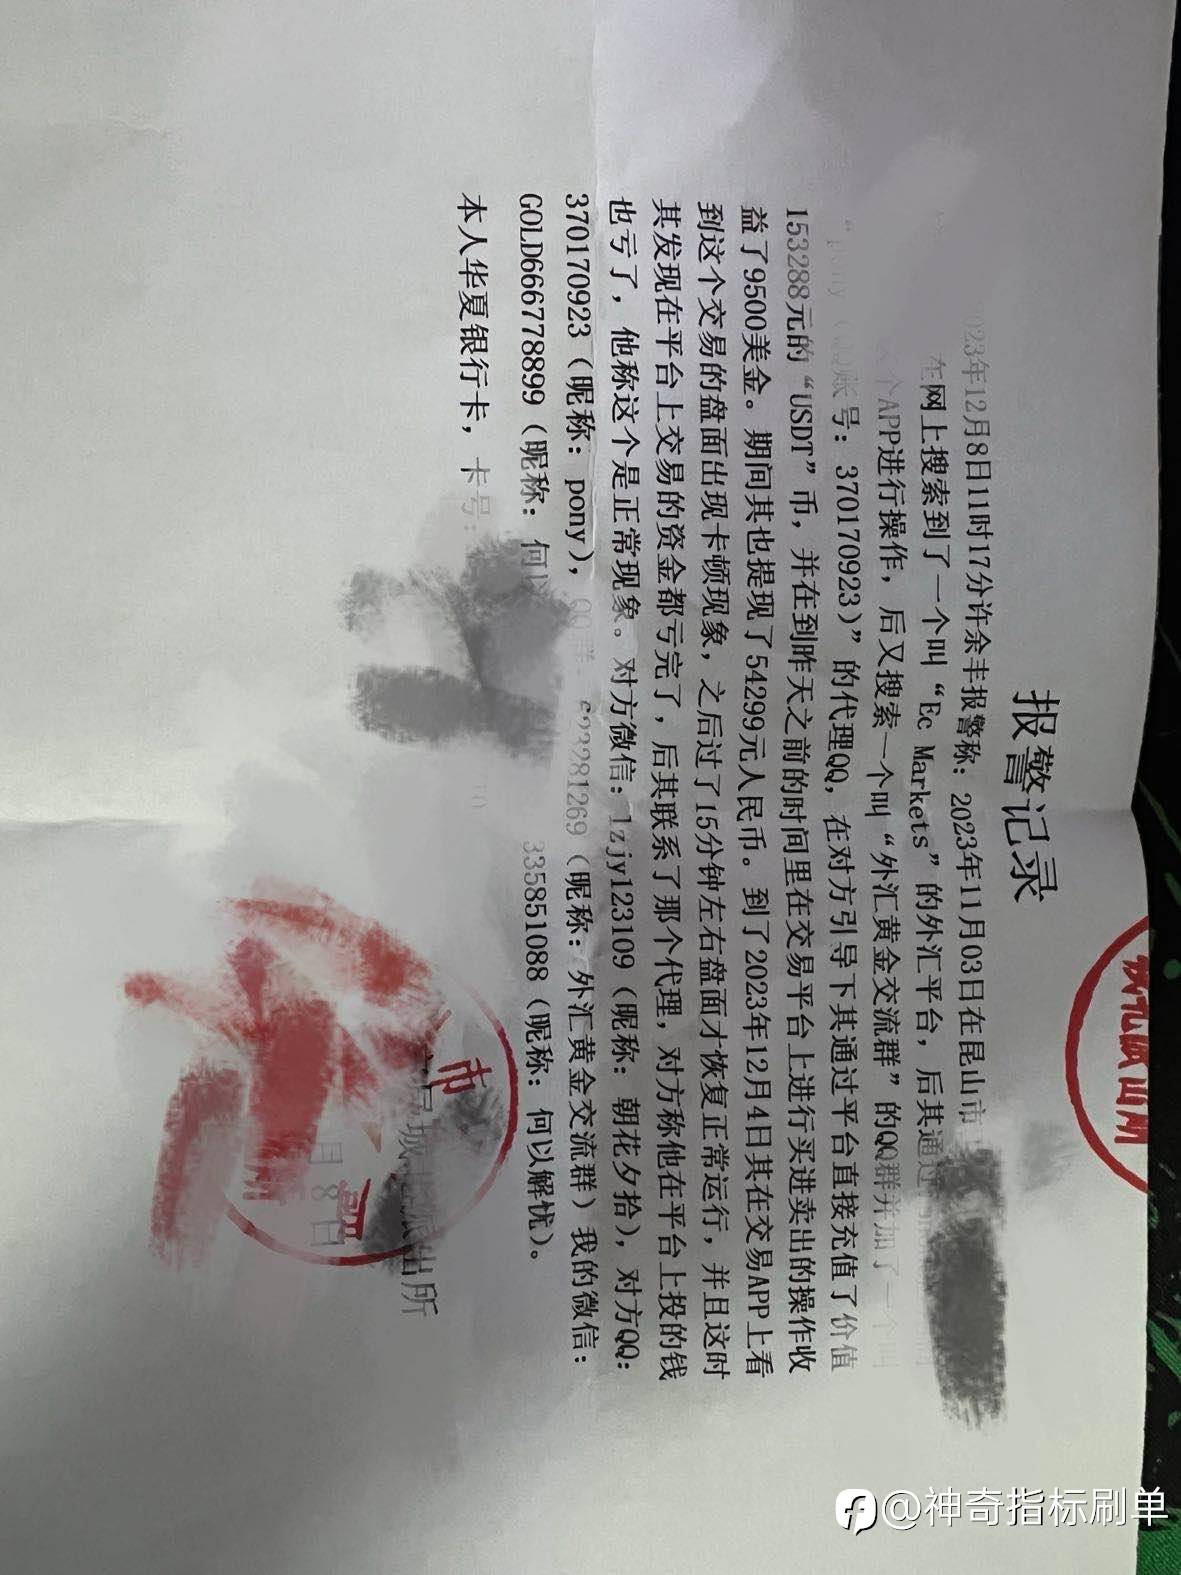 报警记录
2023年12月8日11时17分许余丰报警称：2023年11月03日在昆山市
在网上搜索到了一个叫“Ec Markets”的外汇平台，后其通过
个APP进行操作，后又搜索一个叫“外汇黄金交流群”的QQ群并加了一个叫
“pony（QQ账号：370170923）”的代理QQ，在对方引导下其通过平台直接充值了价值
153288元的“USDT”币，并在到昨天之前的时间里在交易平台上进行买进卖出的操作收
益了9500美金。期间其也提现了54299元人民币。到了2023年12月4日其在交易APP上看
到这个交易的盘面出现卡顿现象，之后过了15分钟左右盘面才恢复正常运行，并且这时
其发现在平台上交易的资金都亏完了，后其联系了那个代理，对方称他在平台上投的钱
也亏了，他称这个是正常现象。对方微信：lzjy123109（昵称：朝花夕拾），对方QQ：
370170923（昵称：pony），QQ群：623281269（昵称：外汇黄金交流群）我的微信：
GOLD666778899（昵称：何以 335851088（昵称：何以解忧）。
本人华夏银行卡，卡号：
派出所
月8日
市
@神奇指标刷单